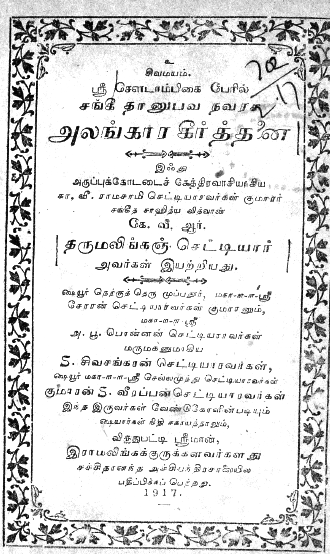 உ
சிவமயம்.
ஸ்ரீ சௌடாம்பிகை பேரில்
சங்கீ தானுபவ நவரச
அலங்கார கீர்த்தனை
இஃது
அருப்புக்கோட்டைச் க்ஷேத்திரவாசியாகிய
கா. வீ. ராமசாமி செட்டியாரவர்கள் குமாரர்
சங்கீத சாஹித்ய வித்வான்
கே. வீ. ஆர்.
தருமலிங்கஞ் செட்டியார்
அவர்கள் இயற்றியது.
ஷையூர் தெற்குத் தெரு முப்பதூர், மகா-ள-ள-ஸ்ரீ
சேரான் செட்டியாரவர்கள் குமாரனும்,
மகா-ள-ள-ஸ்ரீ
அ. பூ. பொன்னன் செட்டியாரவர்கள்
மருமகனுமாகிய
S. சிவசங்கரன் செட்டியாரவர்கள்,
ஷையூர் மகா-ள-ள-ஸ்ரீ செல்லமுத்து செட்டியாரவர்கள்
குமாரன் S. வீரப்பன்செட்டியாரவர்கள்
இந்த இருவர்கள் வேண்டுகோளின்படியும்
ஷையார்கள் நிதி சகாயத்தாலும்,
விருதுபட்டி ஸ்ரீமான்,
இராமலிங்கக்குருக்களவர்களது
சச்சிதானந்த அச்சியந்திரசாலையில்
பதிப்பிக்கப் பெற்றது.
1917.